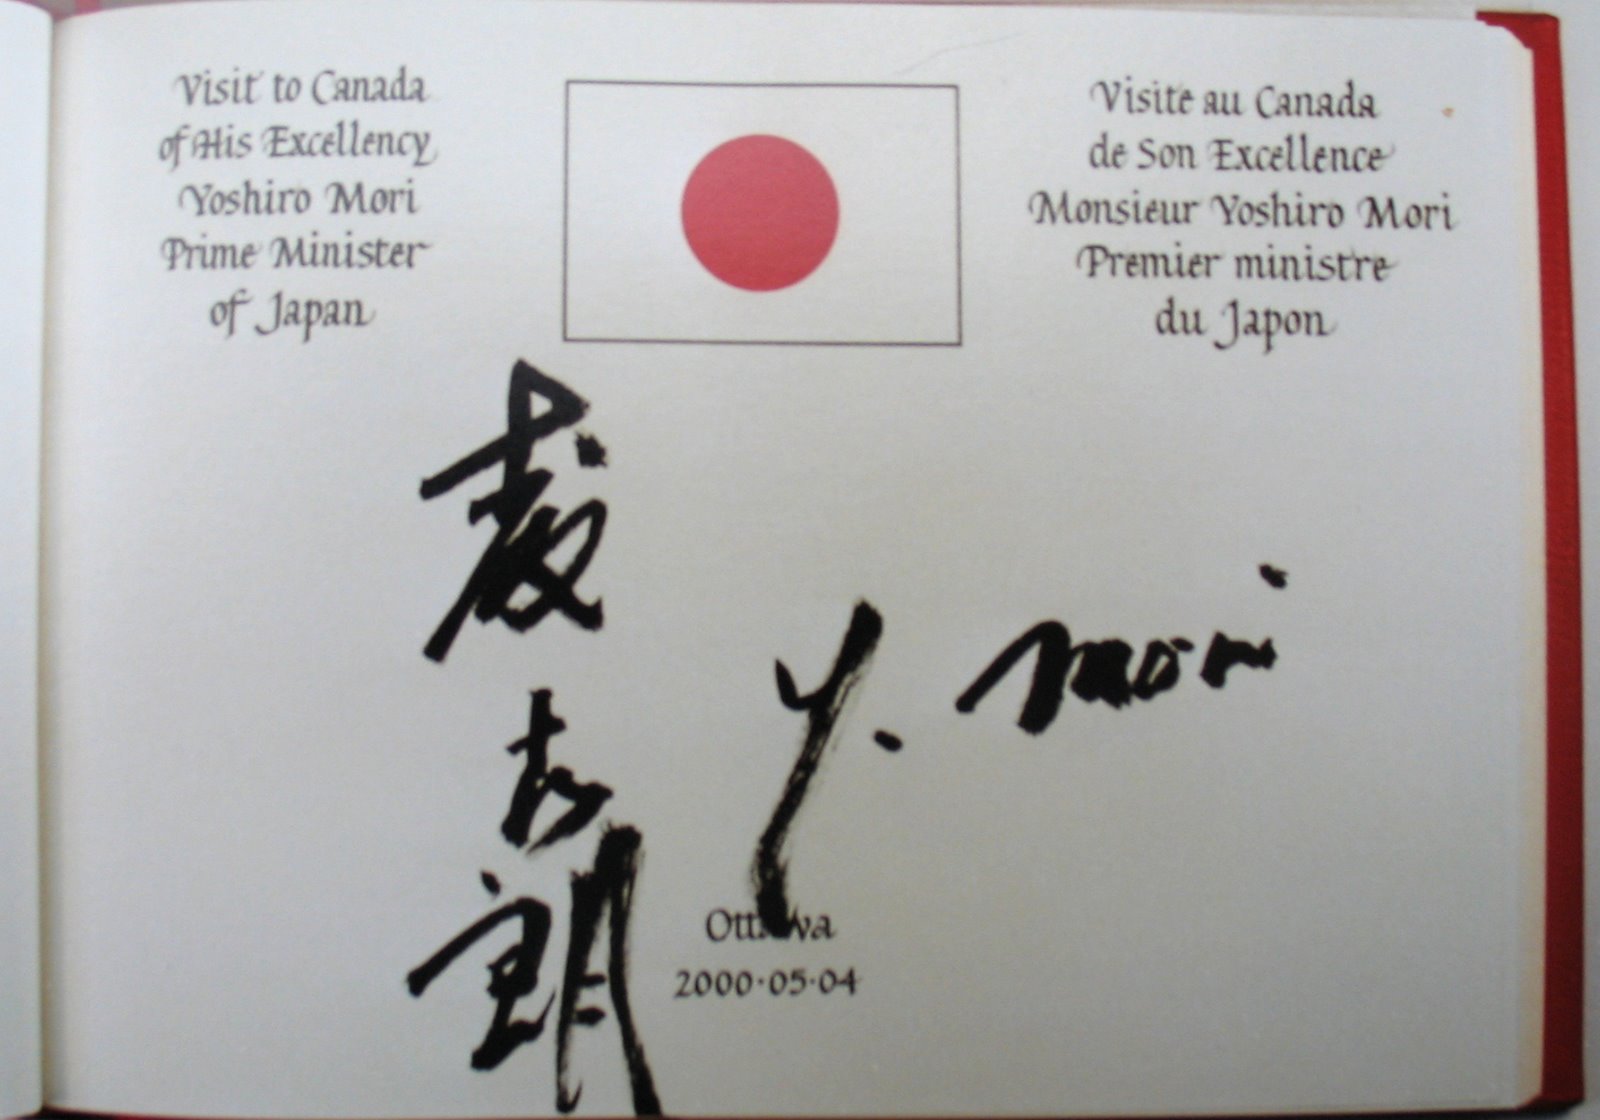 Visit to Canada
of His Excellency
Yoshiro Mori
Prime Minister
of Japan
Visite au Canada
de Son Excellence
Monsieur Yoshiro Mori
Premier ministre
du Japon
森喜朗
Y. Mori
Ottawa
2000·05·04